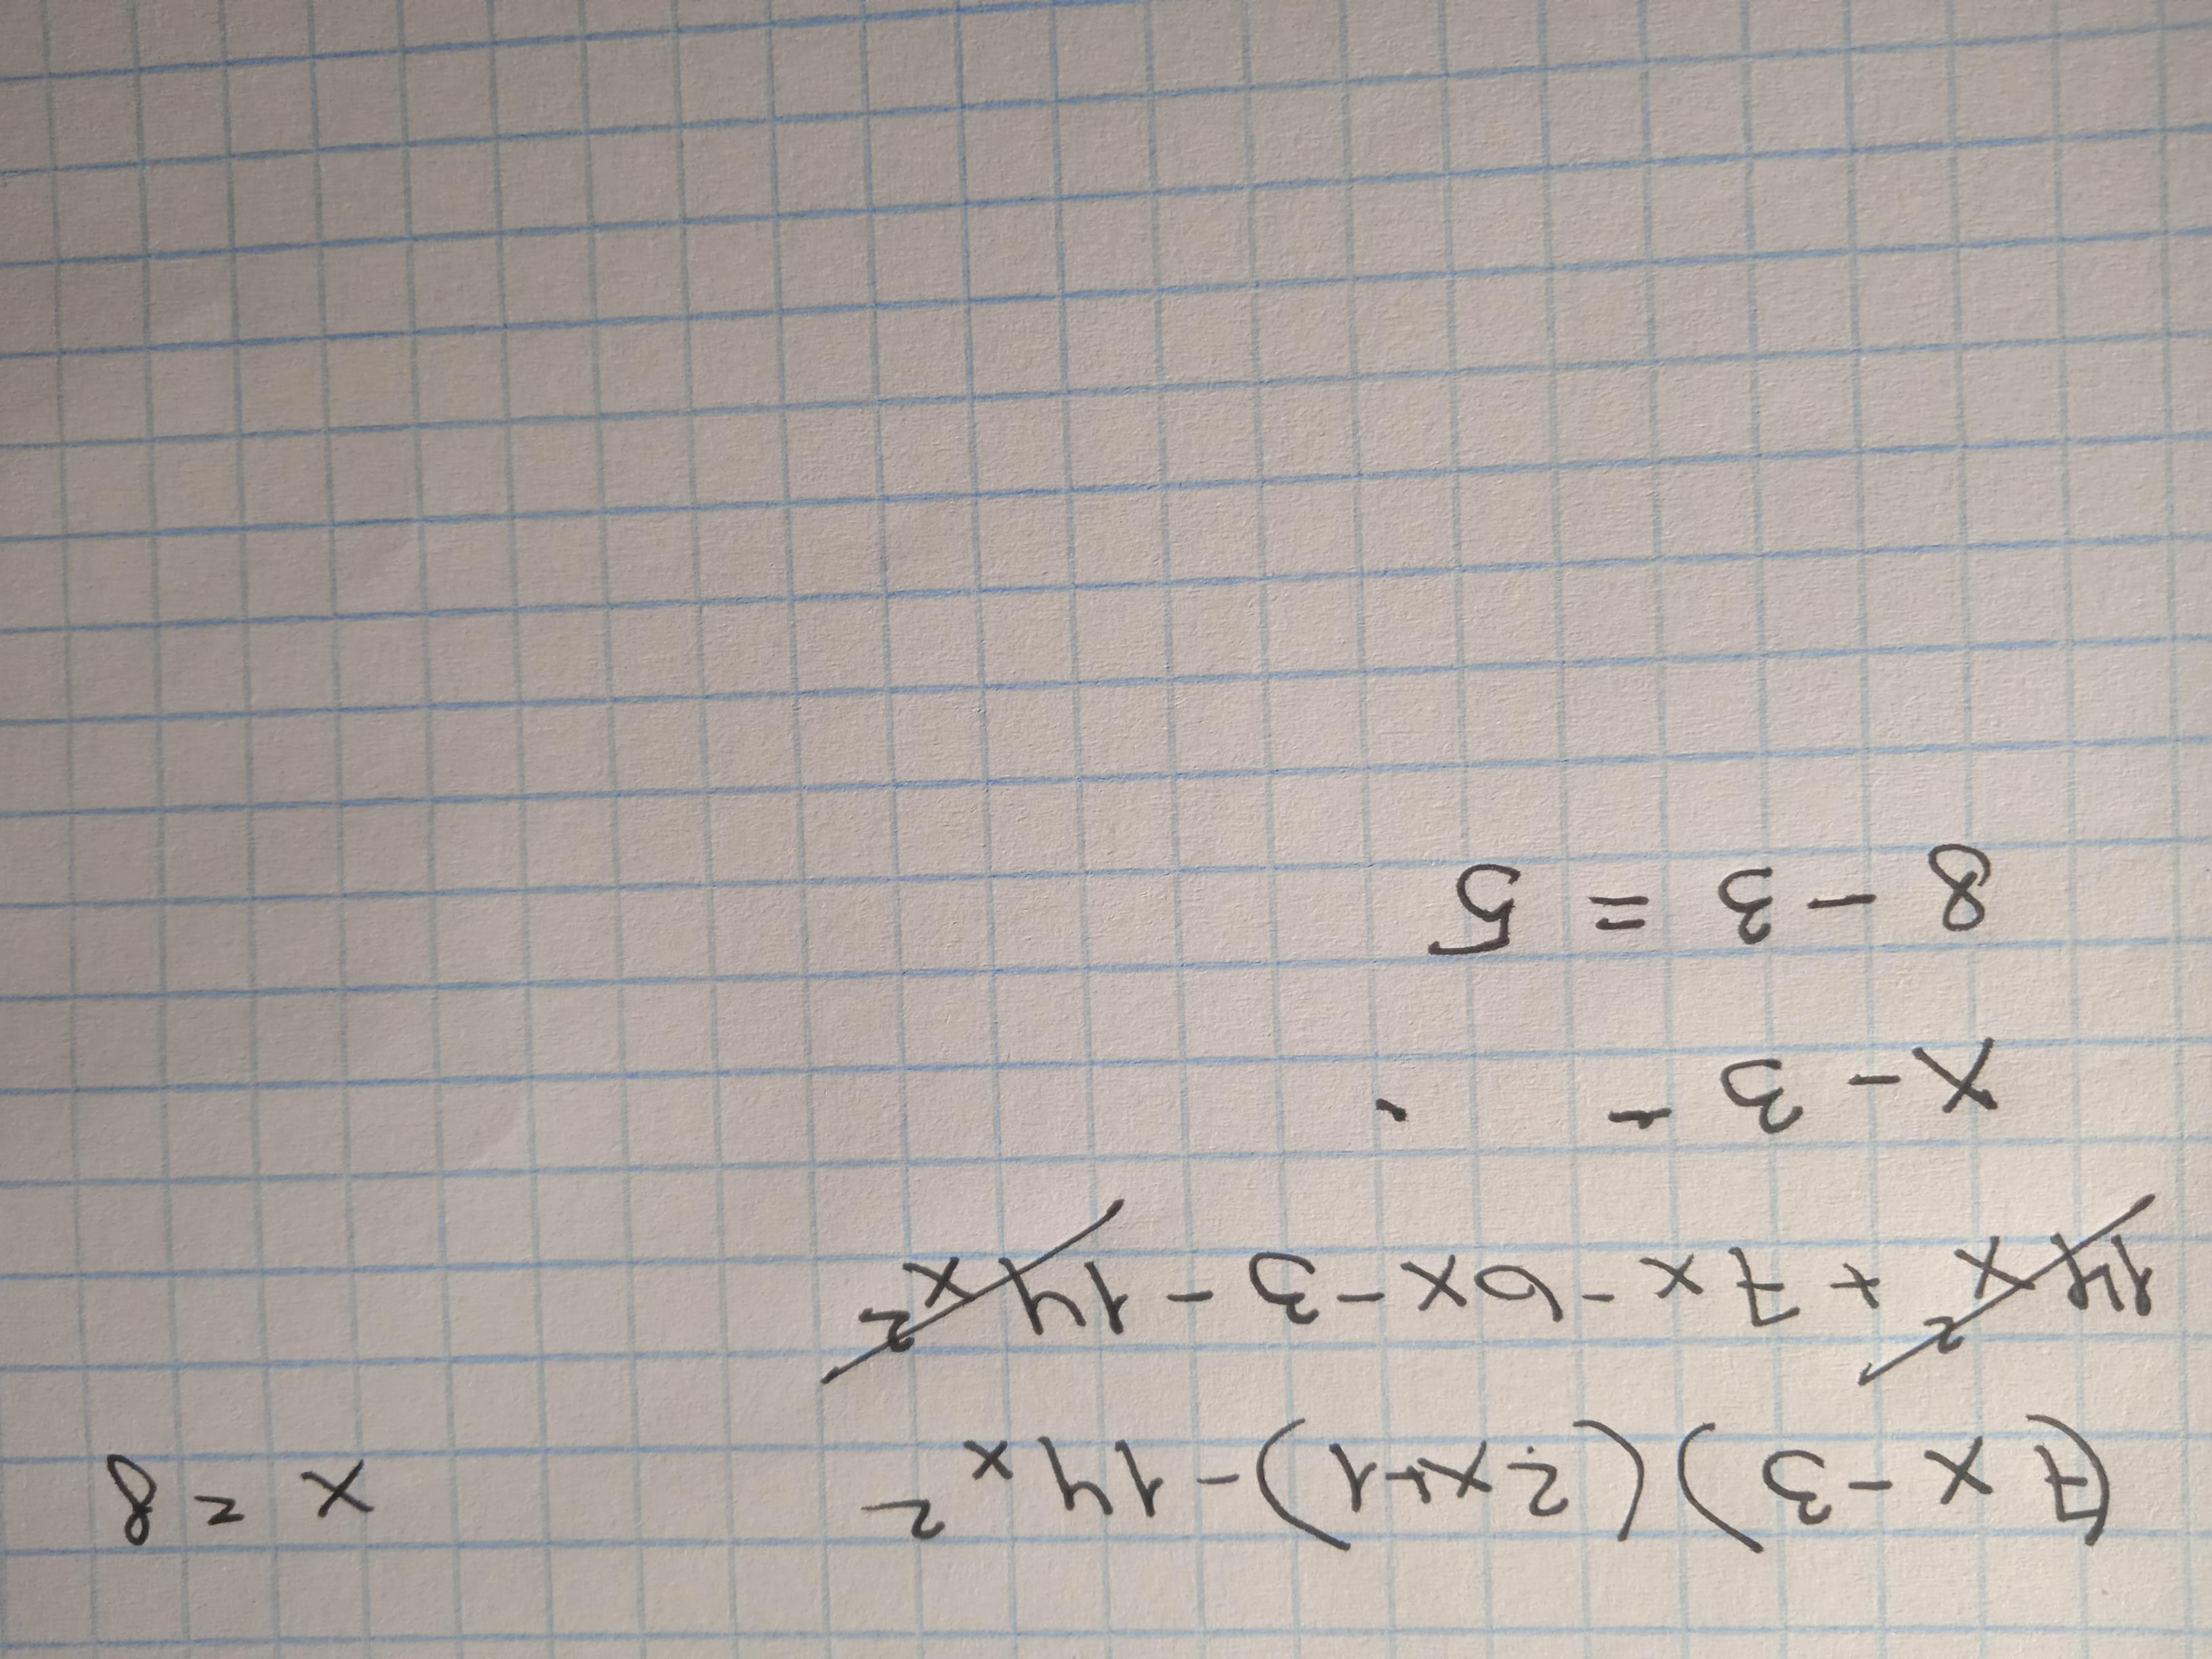 (7x-3)(2x+1)-14x² x=8
14x²+7x-6x-3-14x²
x-3-
8-3=5